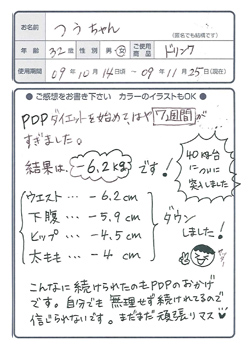 お名前
つうちゃん
（匿名でも結構です）
年齢 32歳 性別 男・女 ご使用商品 ドリンク
使用期間 09年10月14日頃 ～ 09年11月25日(現在)
● ご感想をお書き下さい カラーのイラストもOK ●
PDPダイエットを始めて、はや7週間が
すぎました。
結果は、－6.2kgです！
40kg台
についに
突入しました
ウエスト … －6.2cm
下腹 … －5.9cm
ヒップ … －4.5cm
太もも … －4cm
ダウン
しました！
こんなに続けられたのもPDPのおかげ
です。自分でも無理せず続けれてるので
信じられないです。まだまだ頑張りマス